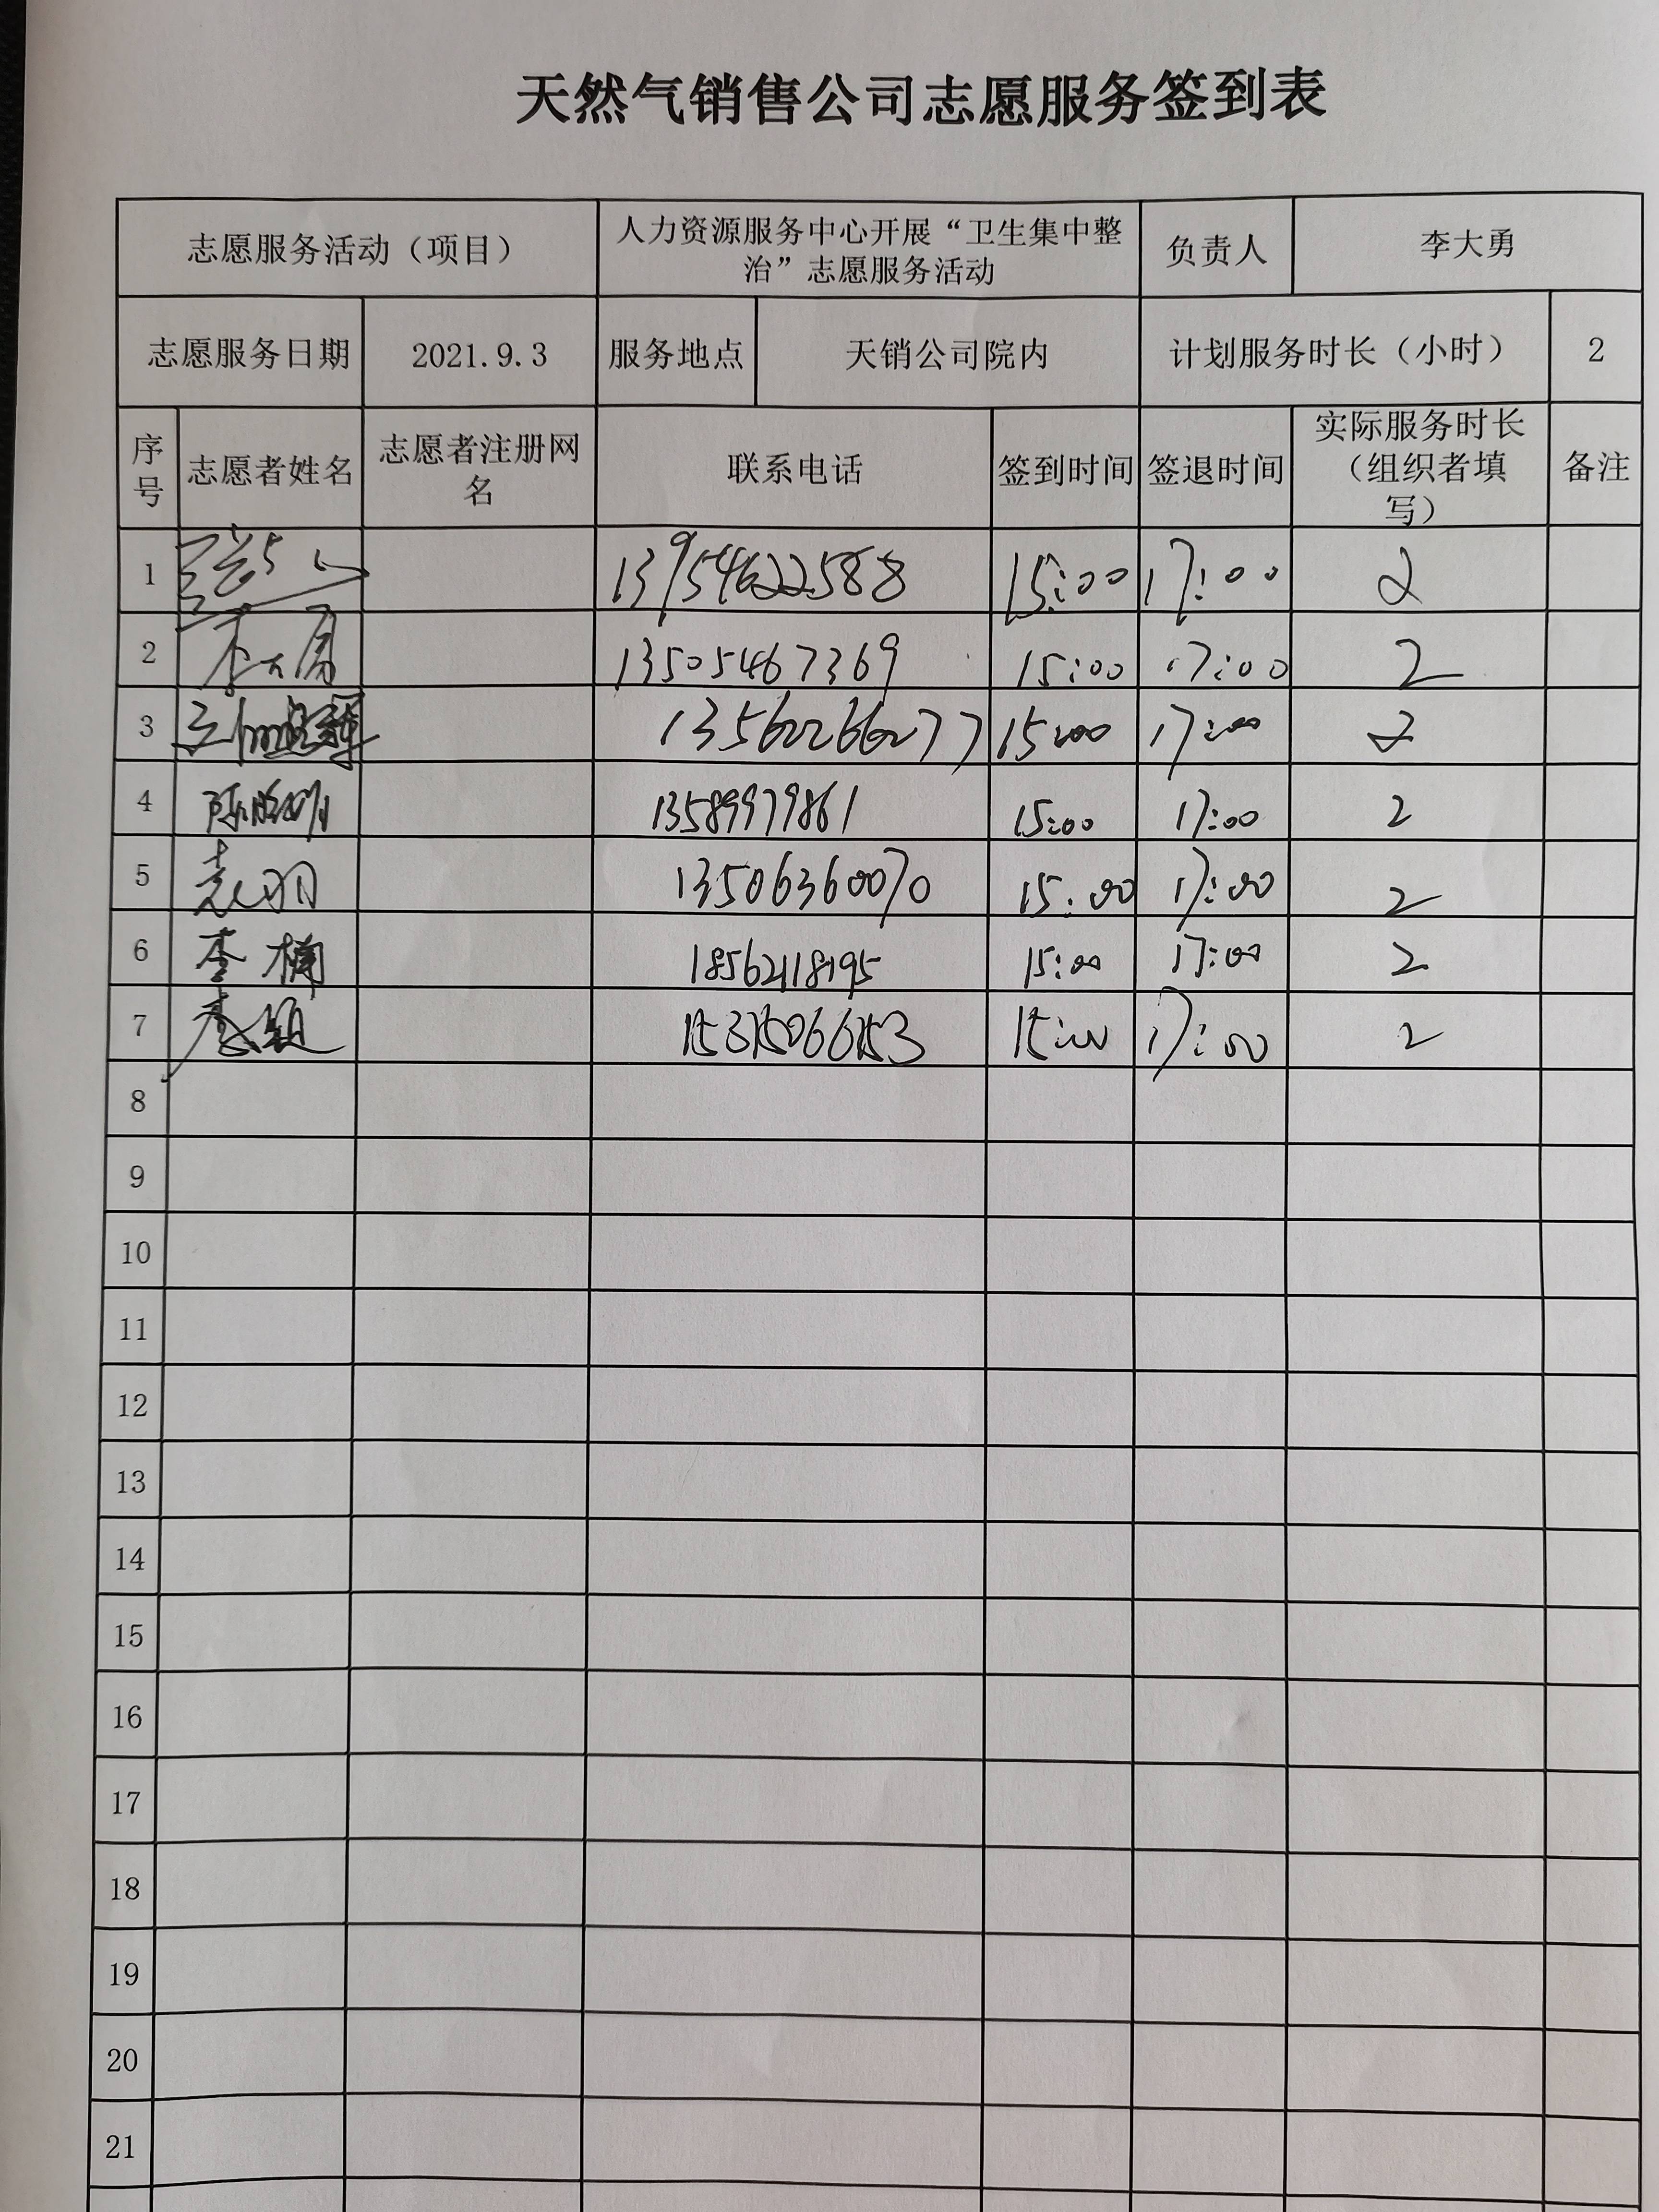 天然气销售公司志愿服务签到表
志愿服务活动（项目） 人力资源服务中心开展“卫生集中整治”志愿服务活动 负责人 李大勇
志愿服务日期 2021.9.3 服务地点 天销公司院内 计划服务时长（小时） 2
序号 志愿者姓名 志愿者注册网名 联系电话 签到时间 签退时间 实际服务时长（组织者填写） 备注
1 13954622588 15:00 17:00 2
2 李大勇 13505467369 15:00 17:00 2
3 13562266277 15:00 17:00 2
4 13589979861 15:00 17:00 2
5 袁羽 13506360070 15:00 17:00 2
6 李楠 18562118195 15:00 17:00 2
7 15315066153 15:00 17:00 2
8
9
10
11
12
13
14
15
16
17
18
19
20
21